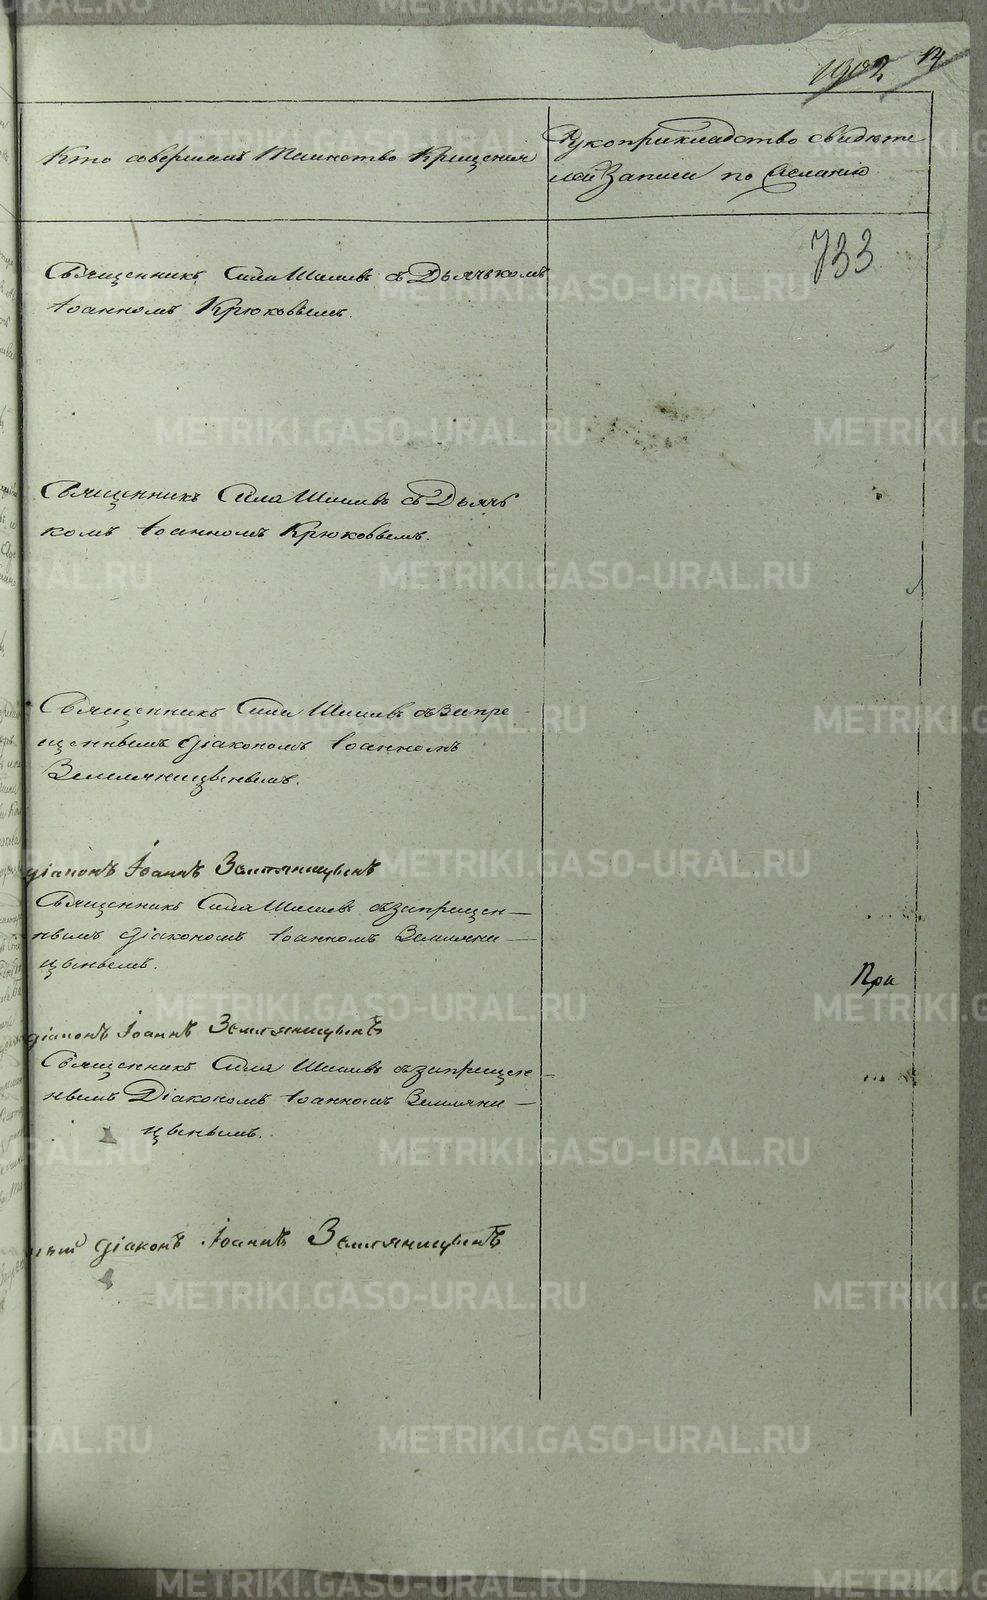 1902. 14
Кто совершалъ Таинство Крещения
Рукоприкладство свидѣте
лей Записи по желанію
733
Священникъ Сила Шишевъ съ Дьячькомъ
Іоанномъ Крюковымъ.
Священникъ Сила Шишевъ съ Дьячь
комъ Іоанномъ Крюковымъ.
Священникъ Сила Шишевъ съ запре
щеннымъ діакономъ Іоанномъ
Земляницынымъ.
діаконъ Іоаннъ Земляницынъ
Священникъ Сила Шишевъ съ запрещен—
нымъ діакономъ Іоанномъ Земляни—
цынымъ.
При
діаконъ Іоаннъ Земляницынъ
Священникъ Сила Шишевъ съ запрещен—
нымъ Діакономъ Іоанномъ Земляни—
цынымъ.
діаконъ Іоаннъ Земляницынъ
METRIKI.GASO-URAL.RU